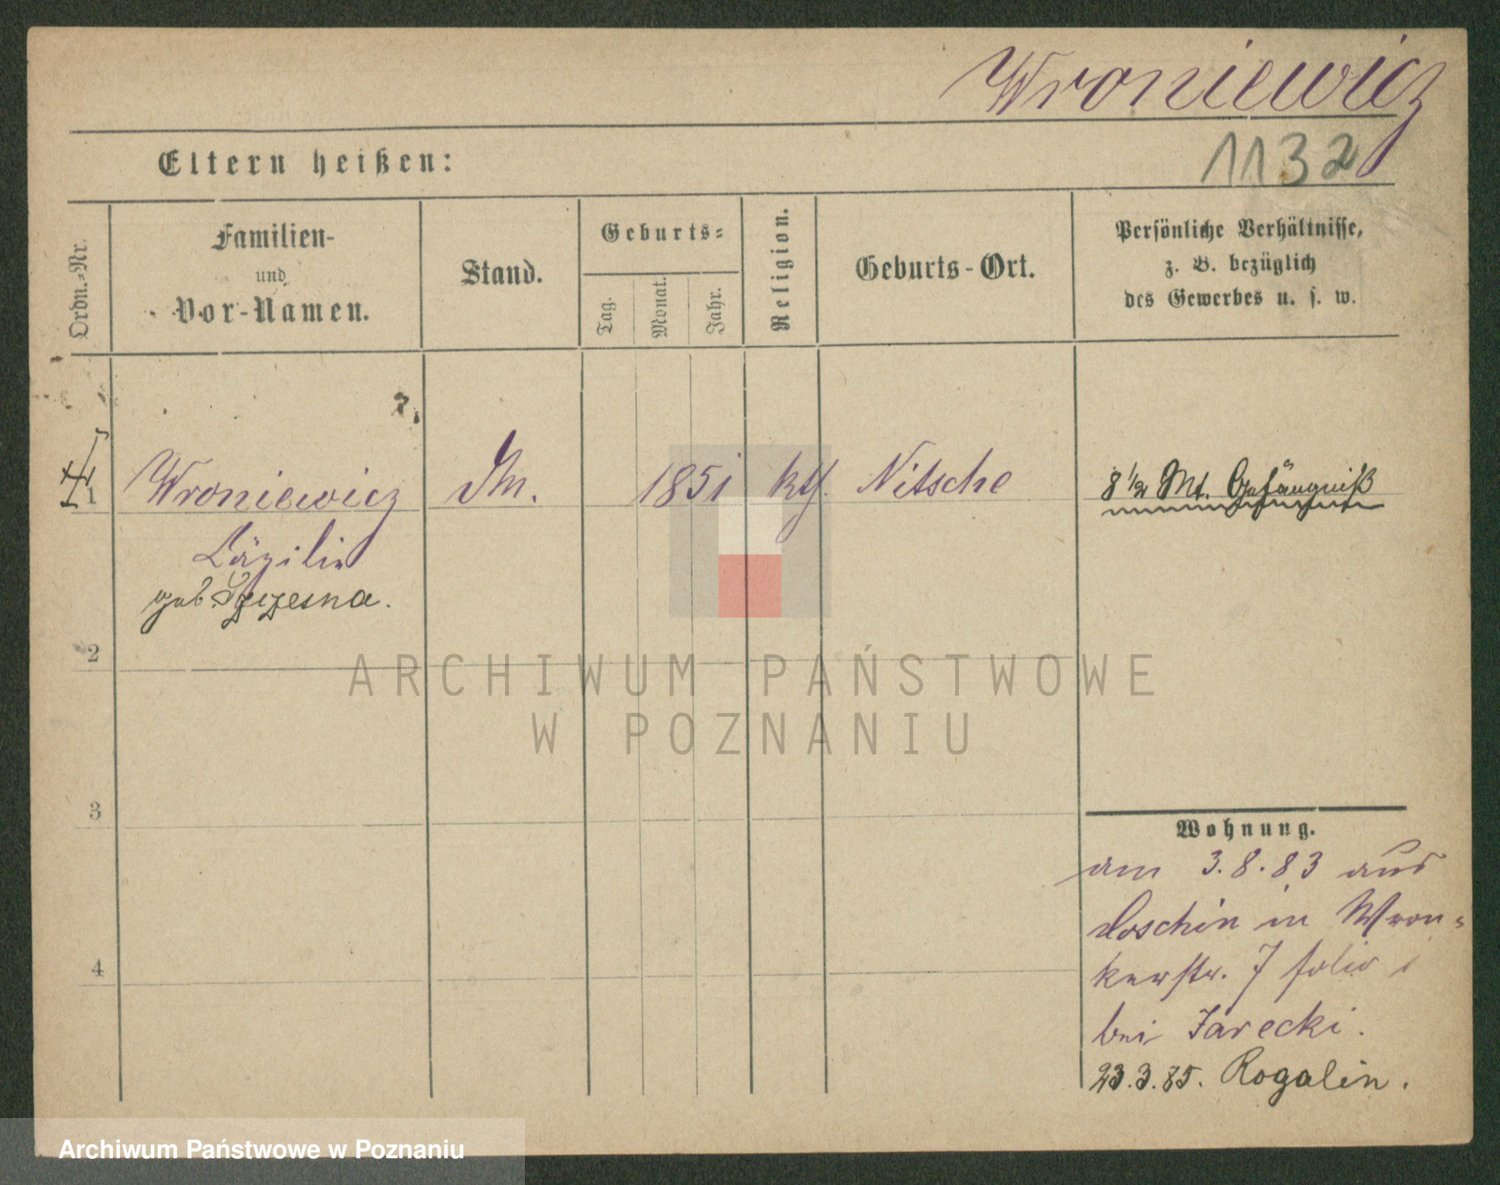 Wroniewicz
1132
Eltern heißen:
Ordn.-Nr.
Familien-
und
Vor-Namen.
Stand.
Geburts-
Tag.
Monat.
Jahr.
Religion.
Geburts-Ort.
Persönliche Verhältnisse,
z. B. bezüglich
des Gewerbes u. s. w.
1 Wroniewicz 1851 kth. Nitsche 8 1/2 Mt. Gefängniß
Cäzilie
geb. Szczesna.
2
3
4
Wohnung.
am 3.8.83 aus
in Wron-
kerstr. 7 folio
bei Jarecki.
23.3.85. Rogalin.
ARCHIWUM PAŃSTWOWE
W POZNANIU
Archiwum Państwowe w Poznaniu